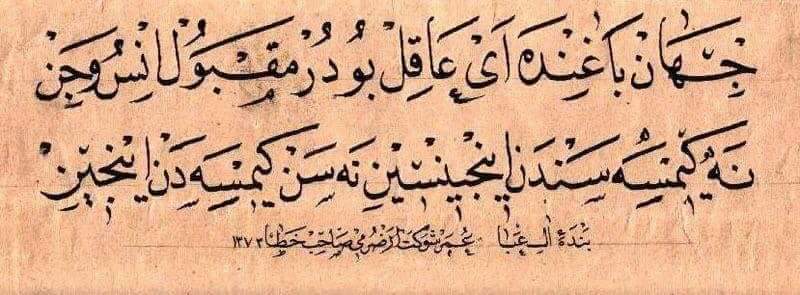 جهان باغنده ای عاقل بودر مقبول انس و جن
نه كیمسه سندن اینجینسین نه سن كیمسه دن اینجین
بندهٔ آل عبا عمر شوكت ارضرومی صاحب خطا ١٣٧٣